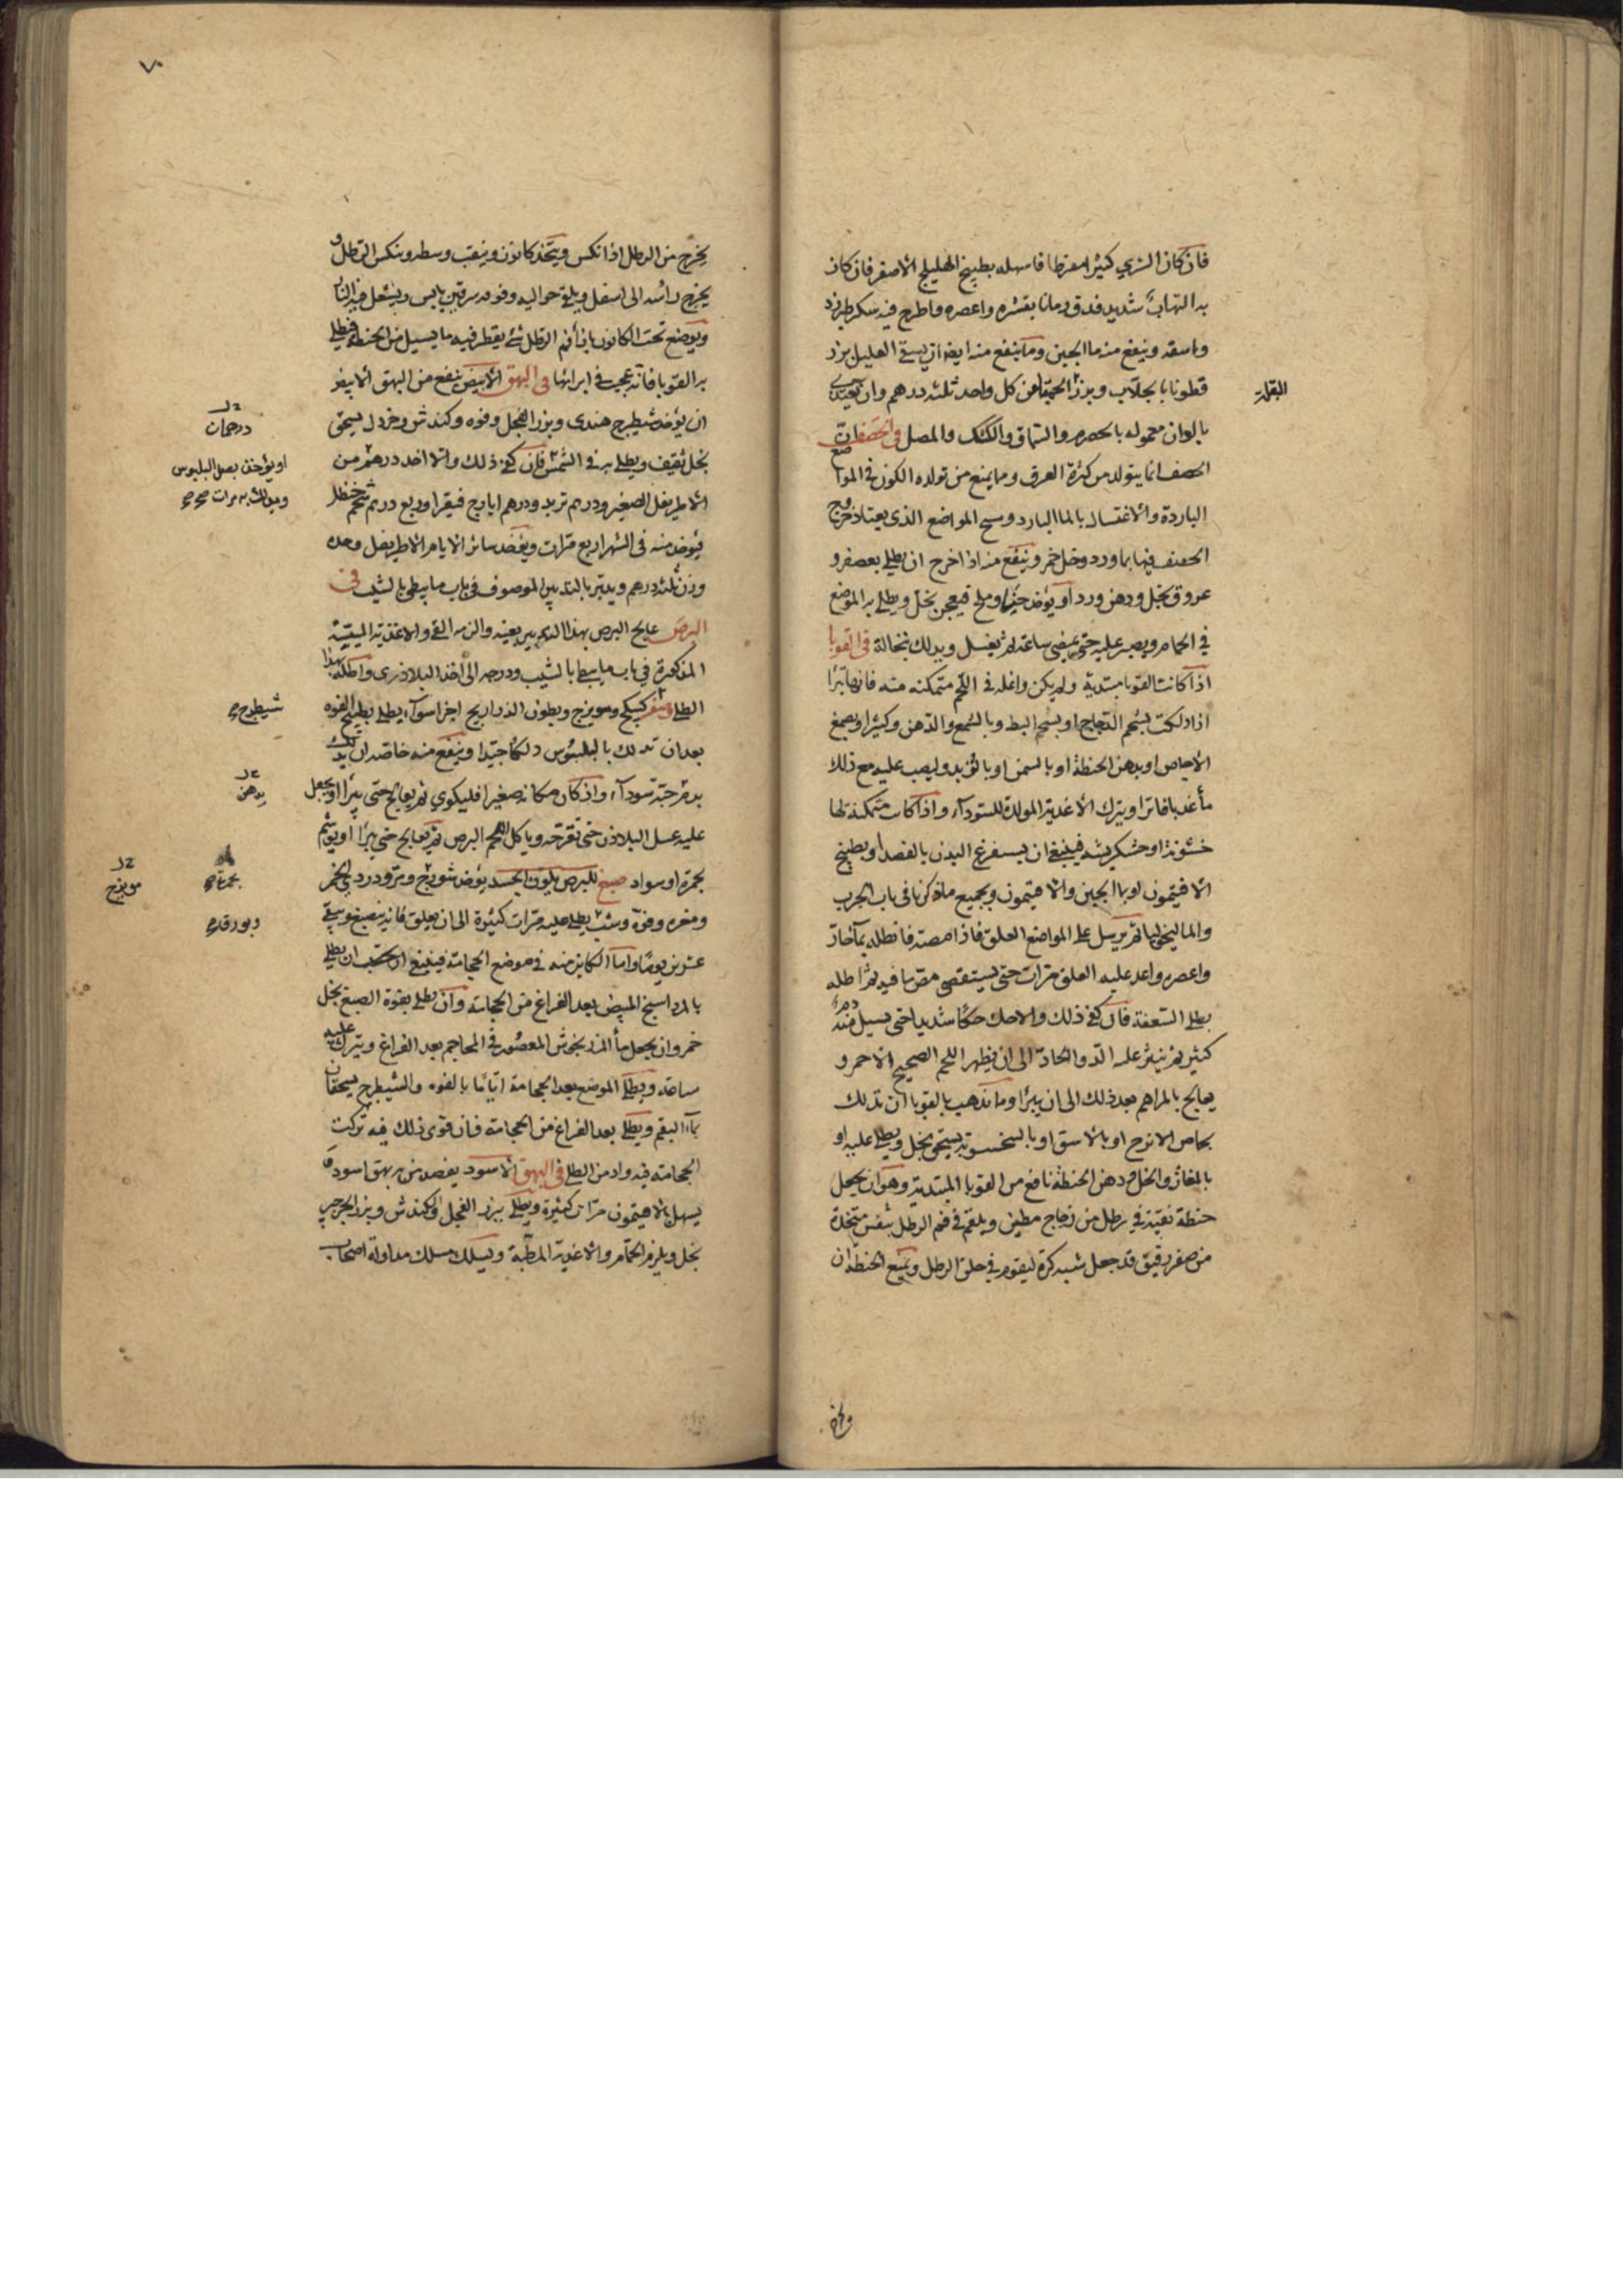 فان كان الشري كثيرا مفرطا فاسهله بطبيخ الهليلج الاصفر فان كان
به التهاب شديد فدق رمانا بقشره واعصره واطرح فيه سكر طبرزد
واسقه وينفع منه ما الجبن وما ينفع منه ايضا ان يسقي العليل بزر
قطونا بالجلاب وبزر الحمقا من كل واحد ثلثه درهم وان يغتذي
بالوان معموله بالحصرم والسماق والكشك والمصل في الحصفات
الحصف انما يتولد من كثرة العرق ومما يمنع من تولده الكون في المواضع
الباردة والاغتسال بالما البارد ومسح المواضع الذي يعتاد خروج
الحصف فيها بماورد وخل خمر وينفع منه اذا خرج ان يطلى بعصفر و
عروق بخل ودهن ورد او يؤخذ حنا وملح فيعجن بخل ويطلى به الموضع
في الحمام ويصبر عليه حتى يمضي ساعة ثم يغسل ويدلك بنخالة في القوبا
اذا كانت القوبا مبتدية ولم يكن واغله في اللحم متمكنه منه فانها تبرا
اذا دلكت بشحم الدجاج او بشحم البط وبالشمع والدهن وكثيرا وبصمغ
الاجاص او بدهن الحنطة او بالسمن او بالزبد وليصب عليه مع ذلك
مأ عذبا فاترا ويترك الاغذية المولدة للسودآء واذا كانت متمكنة لها
خشونة او خشكريشه فينبغي ان يستفرغ البدن بالفصد او بطبيخ
الافتيمون او بما الجبن والافتيمون وبجميع ما ذكرنا في باب الجرب
والماليخوليا ثم يرسل على المواضع العلق فاذا امصته فانطله بمآ حار
واعصره واعد عليه العلق مرات حتى يستقصى مص ما فيه ثم اطله
بطلى السعفة فان كفى ذلك والا حك حكا شديدا حتى يسيل منه دم
كثير ثم ينثر عليه الدوا الحادة الى ان يظهر اللحم الصحيح الاحمر و
يعالج بالمراهم بعد ذلك الى ان يبرأ ومما تذهب بالقوبا ان تدلك
بحماض الاترج او بالاشق او يسحق بخل ويطلى عليه او
بالمغاث والخل ودهن الحنطة نافع من القوبا المبتدية وهو ان يجعل
حنطة نقية في رطل من زجاج مطين ويلقم في فم الرطل متخذة
من صفر رقيق قد جعل شبه كرة ليقوم في حلق الرطل ويمنع الحنطة ان
البقلة
يخرج من الرطل اذا نكس ويتخذ كانون ويثقب وسطه وينكس الرطل و
يخرج راسه الى اسفل ويلقى حواليه وفوقه سرقين يابس ويشعل فيه النار
ويوضع تحت الكانون بازأ فم الرطل شئ يقطر فيه ما يسيل من الحنطة فيطلى
به القوبا فانه عجيب في ابرائها في البهق الابيض ينفع من البهق الابيض
ان يؤخذ شيطرج هندي وبزر الفجل وفوه وكندش وخردل يسحق
بخل ثقيف ويطلى به في الشمس فان كفى ذلك والا اخذ درهم من
الاطريفل الصغير ودرهم تربد ودرهم ايارج فيقرا وربع درهم شحم حنظل
فيؤخذ منه في الشهر اربع مرات ويؤخذ سائر الايام الاطريفل وحده
وزن ثلثه درهم ويدبر بالتدبير الموصوف في باب ما يبطي بالشيب في
البرص عالج البرص بهذا التدبير بعينه والزمه القي والاغذية
المذكورة في باب ما يبطي بالشيب ودرجه الى اخذ البلاذري واطله بهذا
الطلى كبيكج وميويزج وبطون الذراريح اجزا سوآء يطلى بطبيخ الفوه
بعد ان تدلك بالبلبوس دلكا جيدا وينفع منه خاصة ان يدلك
بدم حية سودآء واذ كان مكانه صغيرا فليكوي ثم يعالج حتى يبرا او يجعل
عليه عسل البلاذر حتى تقرحه وياكل اللحم البرص ثم يعالج حتى يبرا او يوشم
بحمرة او سواد صبغ للبرص بلون الجسد يؤخذ شورج ودردي الخمر
ومغره وفوه وشب يطلى عليه مرات كثيرة الى ان يعلق فانه ينصبغ ويبقى
عشرين يوما واما الكاين منه في موضع الحجامة فينبغي ان يطلى
بالمرداسنج المبيض بعد الفراغ من الحجامة وان يطلى بقوة الصبغ بخل
خمر وان يجعل مأ المرزنجوش المعصور في المحاجم بعد الفراغ ويترك عليه
ساعه ويطلى الموضع بعد الحجامة اياما بالفوه والشيطرج يسحقان
بمآء البقم ويطلى بعد الفراغ من الحجامة فان قوي ذلك فيه تركت
الحجامة فيه وادمن الطلى في البهق الاسود يفصد من به بهق اسود و
يسهل بالافتيمون مرات كثيرة ويطلى ببزر الفجل والكندش وبزر الجرجير
بخل ويلزم الحمام والاغذية المرطبة ويسلك مسلك مداواة اصحاب
درهمان
او يؤخذ بصل البلبوس
شيطرج
بدهن
مويزج
وبورق
٧٠